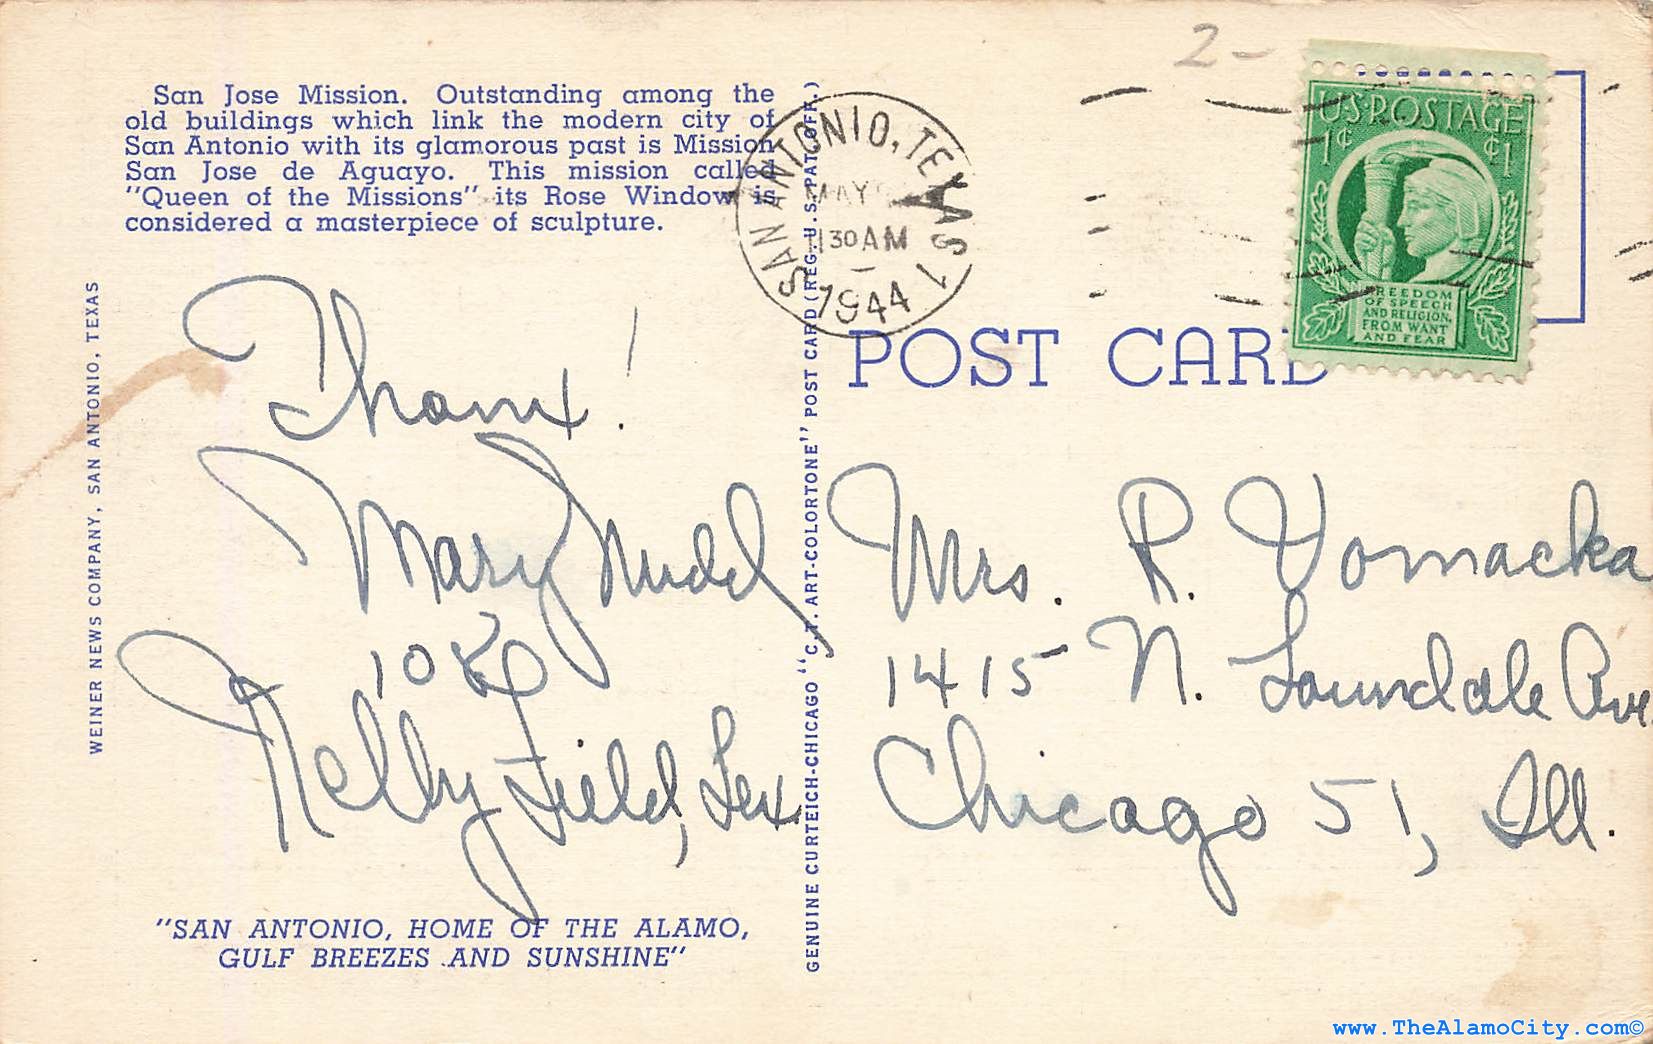 San Jose Mission. Outstanding among the
old buildings which link the modern city of
San Antonio with its glamorous past is Mission
San Jose de Aguayo. This mission called
"Queen of the Missions" its Rose Window is
considered a masterpiece of sculpture.
WEINER NEWS COMPANY, SAN ANTONIO, TEXAS
Thanx!
Mary Nudd
Kelly Field, Tex.
"SAN ANTONIO, HOME OF THE ALAMO,
GULF BREEZES AND SUNSHINE"
GENUINE CURTEICH-CHICAGO "C.T. ART-COLORTONE" POST CARD (REG. U.S. PAT. OFF.)
2-
SAN ANTONIO, TEXAS 1
MAY
1130 AM
1944
U.S. POSTAGE
1¢ ¢1
FREEDOM
OF SPEECH
AND RELIGION,
FROM WANT
AND FEAR
POST CARD
Mrs. R. Vomacka
1415 N. Lawndale Ave.
Chicago 51, Ill.
www.TheAlamoCity.com©